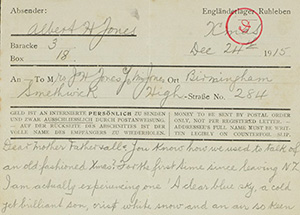 Absender: Engländerlager Ruhleben
Albert H Jones Xmas
Baracke 3 Dec 24th 1915
Box 18
An—To Mrs J H Jones Ort. Birmingham
Smethwick High-Straße No 284
GELD IST AN INTERNIERTE PERSÖNLICH ZU SENDEN MONEY TO BE SENT BY POSTAL ORDER
UND ZWAR AUSSCHLIESSLICH DURCH POSTANWEISUNG. ONLY, NOT PER REGISTERED LETTER.
AUF DER RÜCKSEITE DES ABSCHNITTES IST DER ADDRESSEE'S FULL NAME MUST BE WRIT-
VOLLE NAME DES EMPFÄNGERS ZU WIEDERHOLEN. TEN LEGIBLY ON COUNTERFOIL.
Dear Mother Father & all. You know how we used to talk of
an old fashioned Xmas? For the first time since leaving N.Z.
I am actually experiencing one! A clear blue sky, a cold
yet brilliant sun, crisp white snow and an air so keen